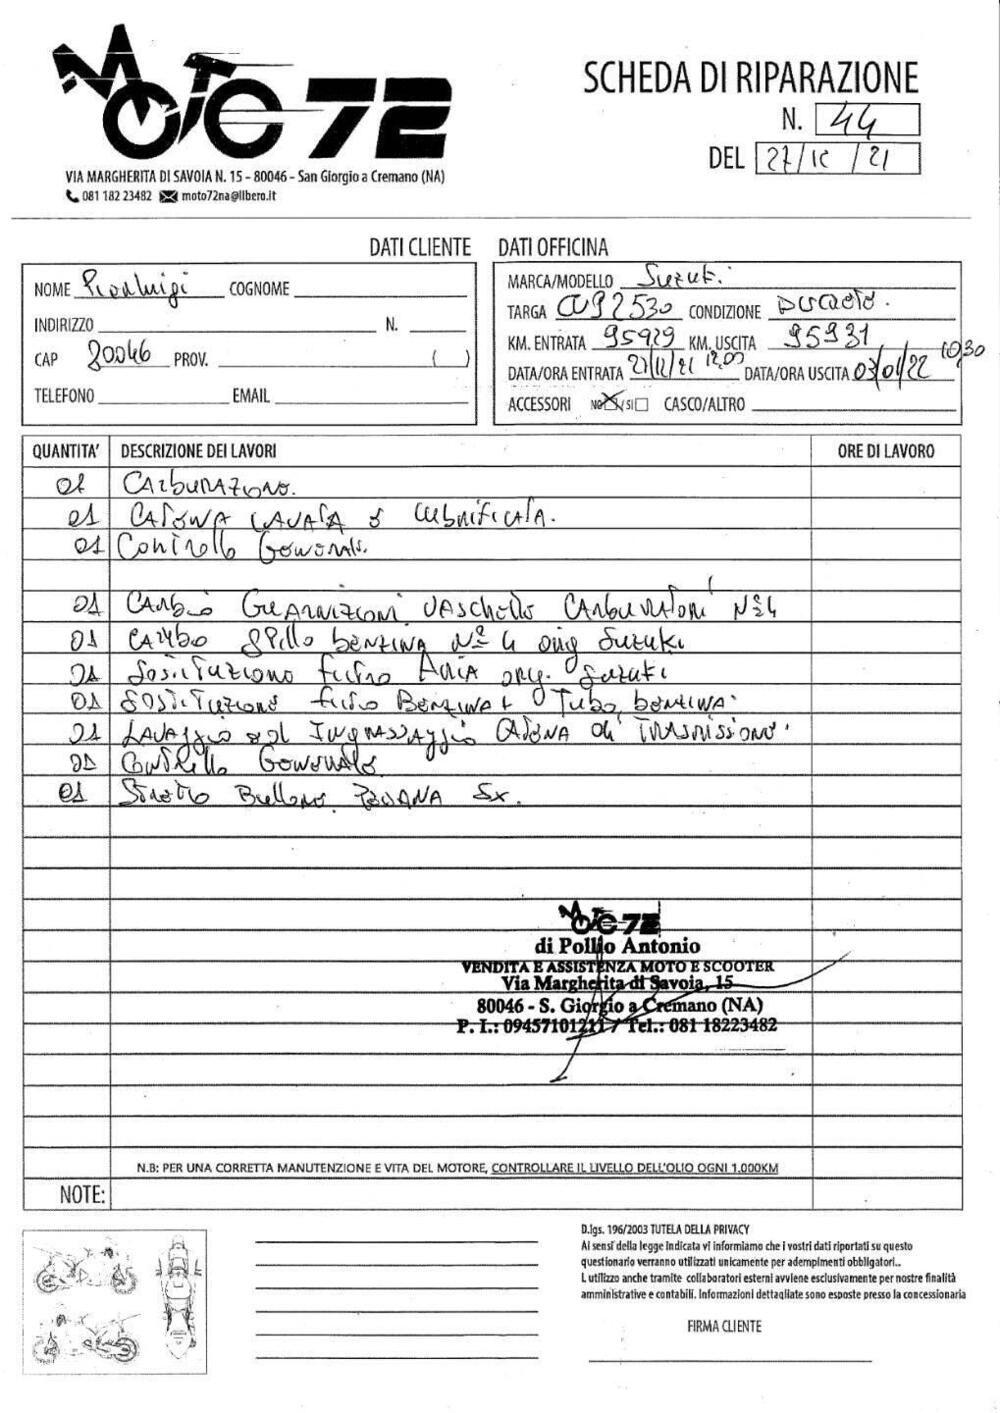 MOTO 72
VIA MARGHERITA DI SAVOIA N. 15 - 80046 - San Giorgio a Cremano (NA)
081 182 23482 moto72na@libero.it
SCHEDA DI RIPARAZIONE
N. 44
DEL 27/12/21
DATI CLIENTE
NOME Pierluigi COGNOME
INDIRIZZO N.
CAP 80046 PROV. ( )
TELEFONO EMAIL
DATI OFFICINA
MARCA/MODELLO Suzuki
TARGA CV92530 CONDIZIONE
KM. ENTRATA 95929 KM. USCITA 95931
DATA/ORA ENTRATA 27/12/21 12,00 DATA/ORA USCITA 03/01/22 10,30
ACCESSORI NO SI CASCO/ALTRO
QUANTITA' DESCRIZIONE DEI LAVORI ORE DI LAVORO
01 CARBURAZIONE.
01 CATENA LAVATA E LUBRIFICATA.
01 Controllo Generale.
01 CAMBIO GUARNIZIONI VASCHETTE CARBURATORI N°4
01 CAMBIO SPILLO BENZINA N° 4 orig SUZUKI
01 Sostituzione filtro ARIA orig. Suzuki
01 SOSTITUZIONE filtro BENZINA + Tubo benzina.
01 LAVAGGIO ed INGRASSAGGIO CATENA di TRASMISSIONE.
01 CONTROLLO GENERALE
01 Stretto Bullone PEDANA Sx.
MOTO 72
di Pollio Antonio
VENDITA E ASSISTENZA MOTO E SCOOTER
Via Margherita di Savoia, 15
80046 - S. Giorgio a Cremano (NA)
P. I.: 09457101211 / Tel.: 081 18223482
N.B: PER UNA CORRETTA MANUTENZIONE E VITA DEL MOTORE, CONTROLLARE IL LIVELLO DELL'OLIO OGNI 1.000KM
NOTE:
D.lgs. 196/2003 TUTELA DELLA PRIVACY
Ai sensi della legge indicata vi informiamo che i vostri dati riportati su questo
questionario verranno utilizzati unicamente per adempimenti obbligatori..
L utilizzo anche tramite collaboratori esterni avviene esclusivamente per nostre finalità
amministrative e contabili. Informazioni dettagliate sono esposte presso la concessionaria
FIRMA CLIENTE